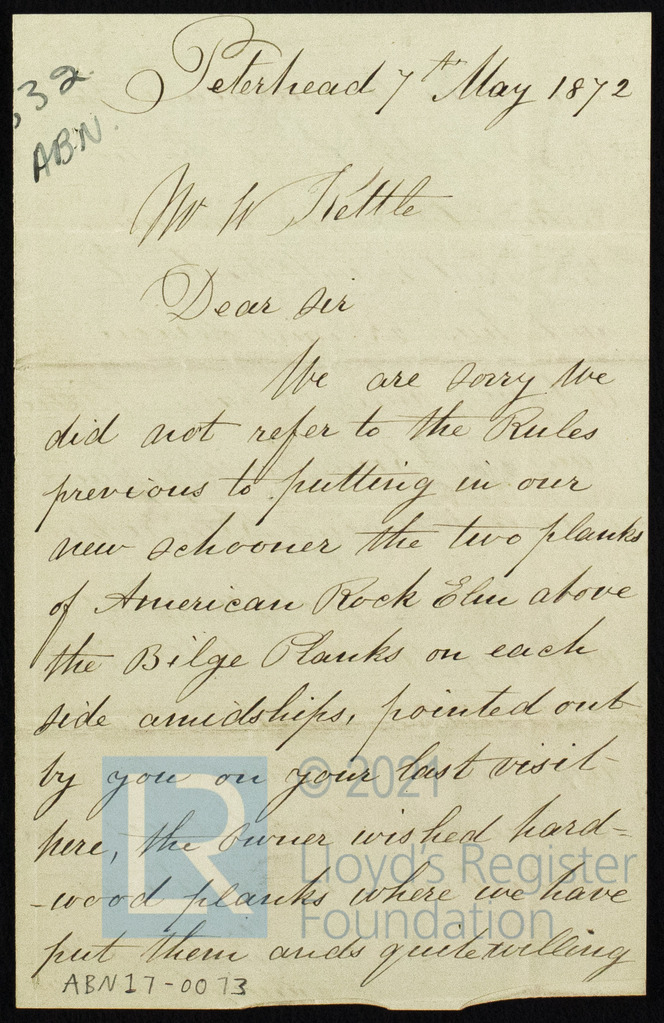 Peterhead 7th May 1872
332
ABN.
Mr W Kettle
Dear sir
We are sorry we
did not refer to the Rules
previous to putting in our
new schooner the two planks
of American Rock Elm above
the Bilge Planks on each
side amidships, pointed out
by you on your last visit
here, the owner wished hard=
-wood planks where we have
put them and s quite willing
ABN17-0073
LR
© 2021
Lloyd's Register
Foundation